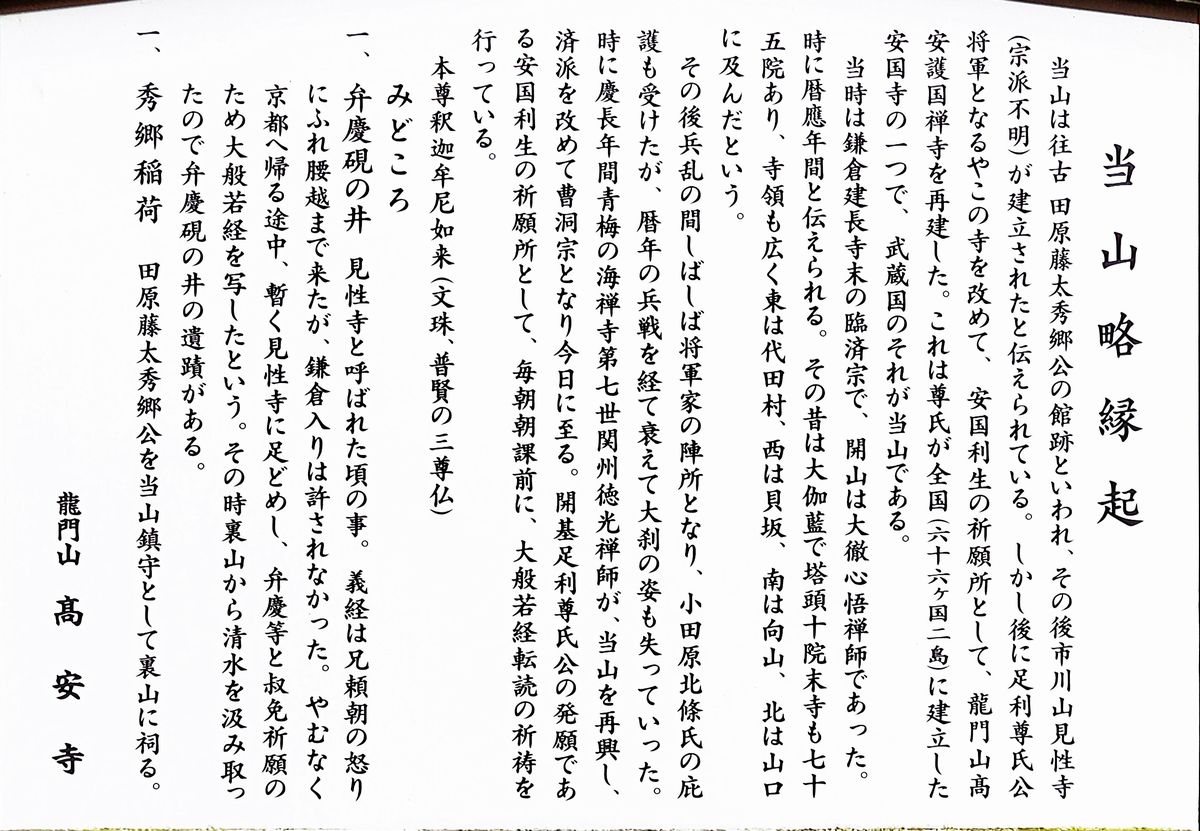 当山略縁起
当山は往古 田原藤太秀郷公の館跡といわれ、その後市川山見性寺
(宗派不明)が建立されたと伝えられている。しかし後に足利尊氏公
将軍となるやこの寺を改めて、安国利生の祈願所として、龍門山髙
安護国禅寺を再建した。これは尊氏が全国(六十六ヶ国二島)に建立した
安国寺の一つで、武蔵国のそれが当山である。
当時は鎌倉建長寺末の臨済宗で、開山は大徹心悟禅師であった。
時に暦應年間と伝えられる。その昔は大伽藍で塔頭十院末寺も七十
五院あり、寺領も広く東は代田村、西は貝坂、南は向山、北は山口
に及んだという。
その後兵乱の間しばしば将軍家の陣所となり、小田原北條氏の庇
護も受けたが、暦年の兵戦を経て衰えて大刹の姿も失っていった。
時に慶長年間青梅の海禅寺第七世関州徳光禅師が、当山を再興し、
済派を改めて曹洞宗となり今日に至る。開基足利尊氏公の発願であ
る安国利生の祈願所として、毎朝朝課前に、大般若経転読の祈祷を
行っている。
本尊釈迦牟尼如来(文珠、普賢の三尊仏)
みどころ
一、弁慶硯の井 見性寺と呼ばれた頃の事。義経は兄頼朝の怒り
にふれ腰越まで来たが、鎌倉入りは許されなかった。やむなく
京都へ帰る途中、暫く見性寺に足どめし、弁慶等と叔免祈願の
ため大般若経を写したという。その時裏山から清水を汲み取っ
たので弁慶硯の井の遺蹟がある。
一、秀郷稲荷 田原藤太秀郷公を当山鎮守として裏山に祠る。
龍門山 髙安寺